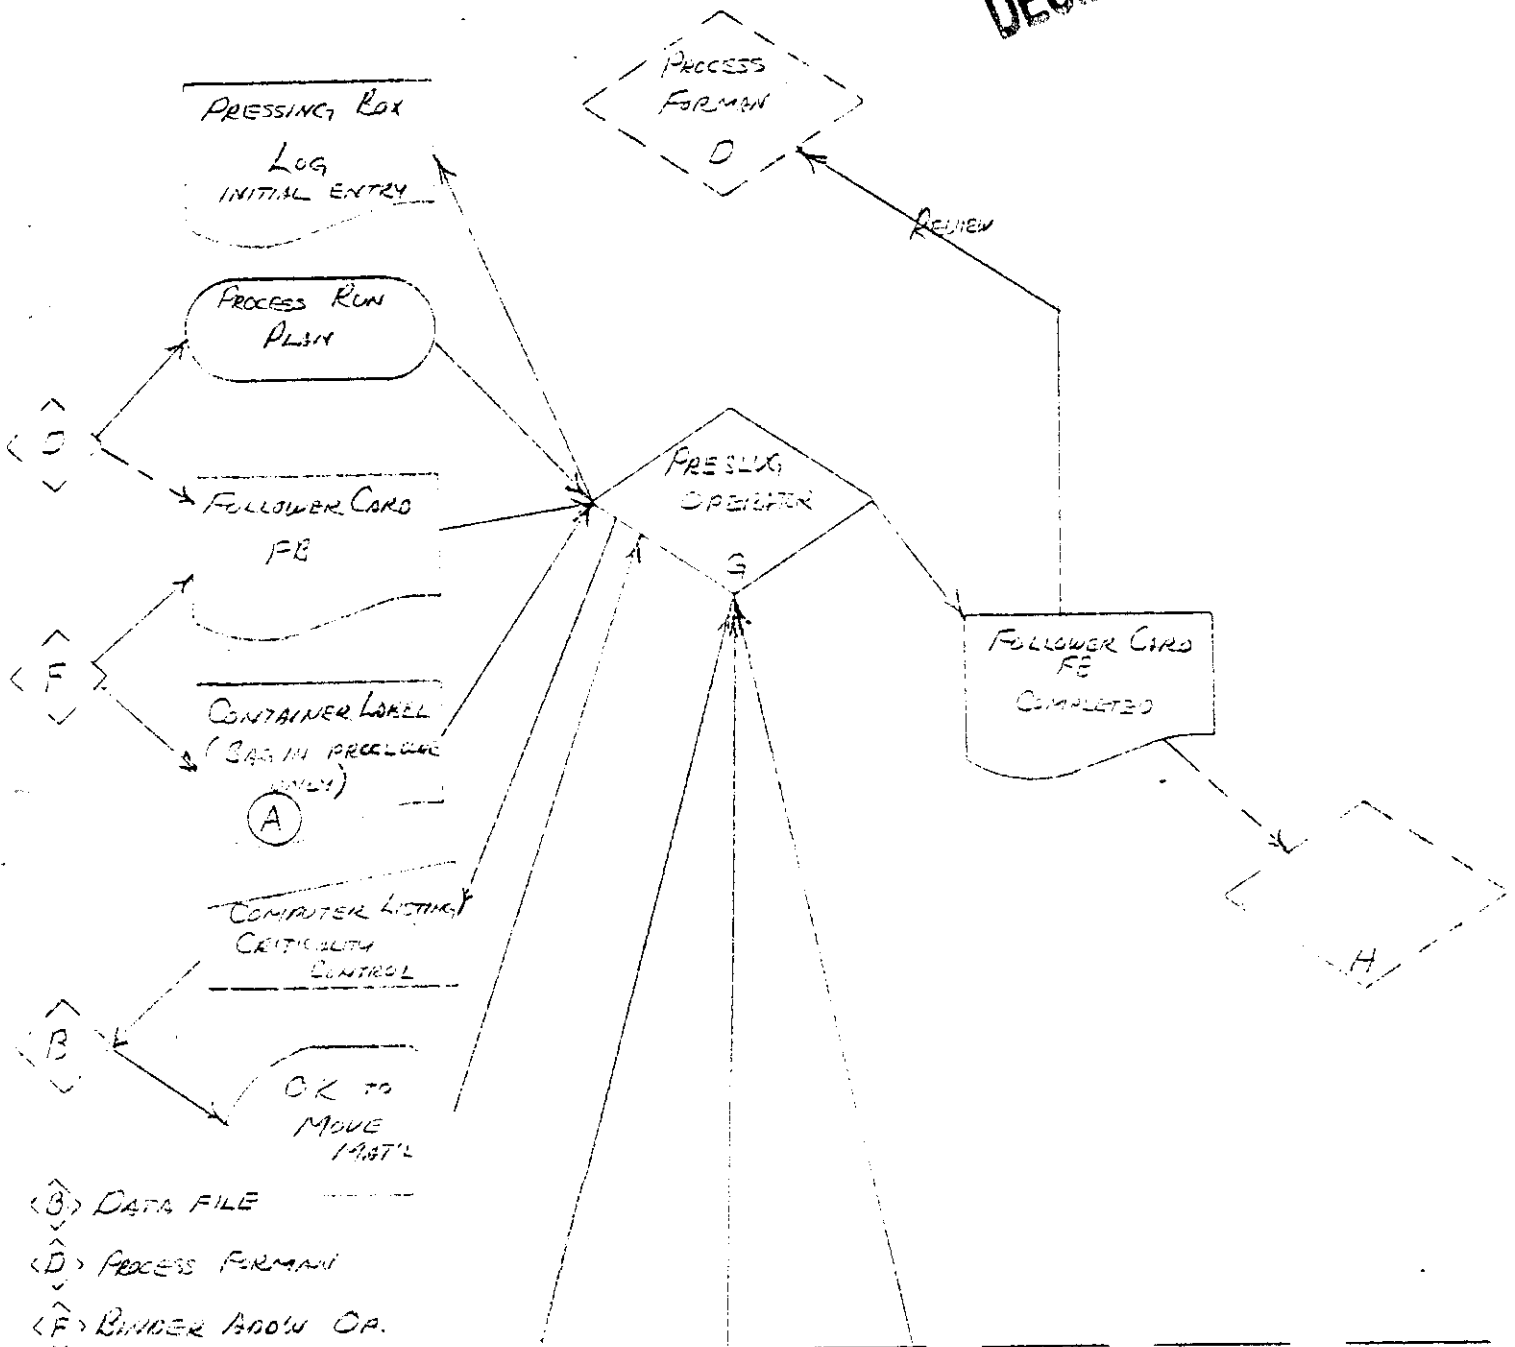 PROCESS
FORMAN
D
PRESSING BOX
LOG
INITIAL ENTRY
REVIEW
PROCESS RUN
PLAN
D
FOLLOWER CARD
FB
PRESLUG
OPERATOR
G
F
CONTAINER LABEL
(BAG IN
ONLY)
A
FOLLOWER CARD
COMPLETED
COMPUTER LISTING
CRITICALITY
CONTROL
H
B
OK TO
MOVE
MAT'L
B DATA FILE
D PROCESS FORMAN
F BINDER ADD'N OP.